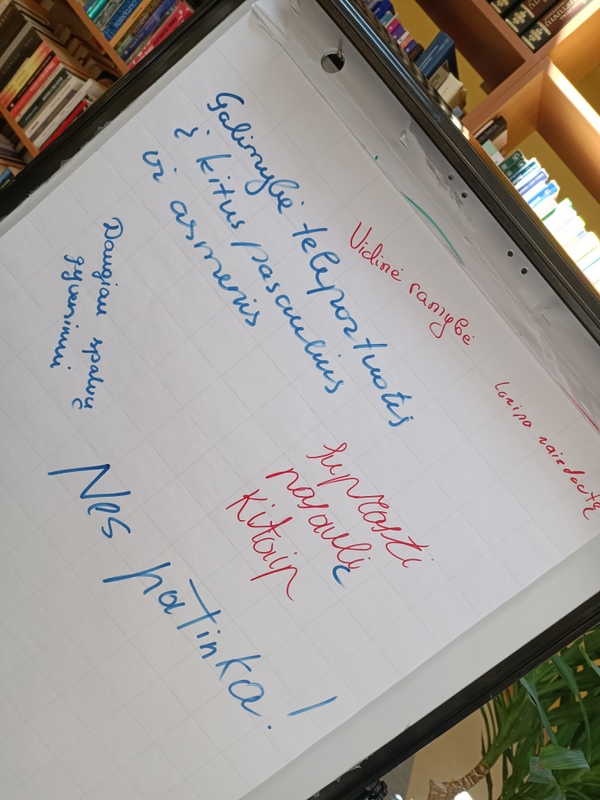 Lavina vaizduotę
Vidinė ramybė
Galimybė teleportuotis
į kitus pasaulius
ir asmenis
Suprasti
pasaulį
kitaip
Daugiau spalvų
gyvenimui
Nes patinka!